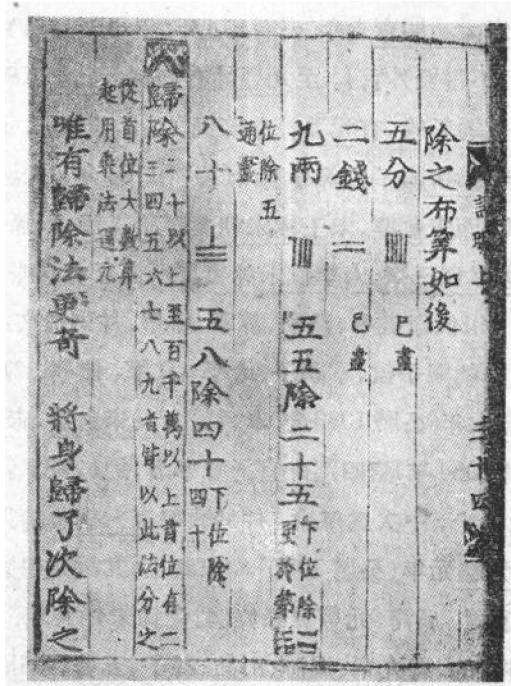 除之布算如後
五分 𝍤 已盡
二錢 〓 已盡
九兩 五五除二十五 下位除二
更於第三
位除五
通盡
八十 五八除四十 下位除
四十
歸除 二十以上至百千萬以上首位有二
三四五六七八九首皆以此法分之
從首位大數算
起用乘法還元
唯有歸除法更奇 將身歸了次除之